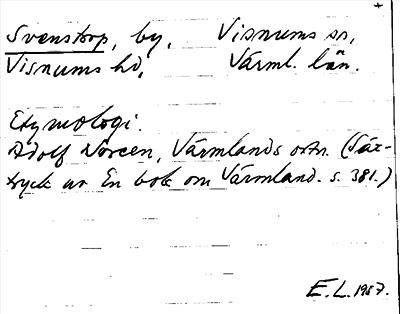 Svenstorp, by, Visnums sn,
Visnums hd, Värml. län.
Etymologi.
Adolf Noreen, Värmlands ortn. (Sär-
tryck ur En bok om Värmland. s. 381.)
E.L. 1957.